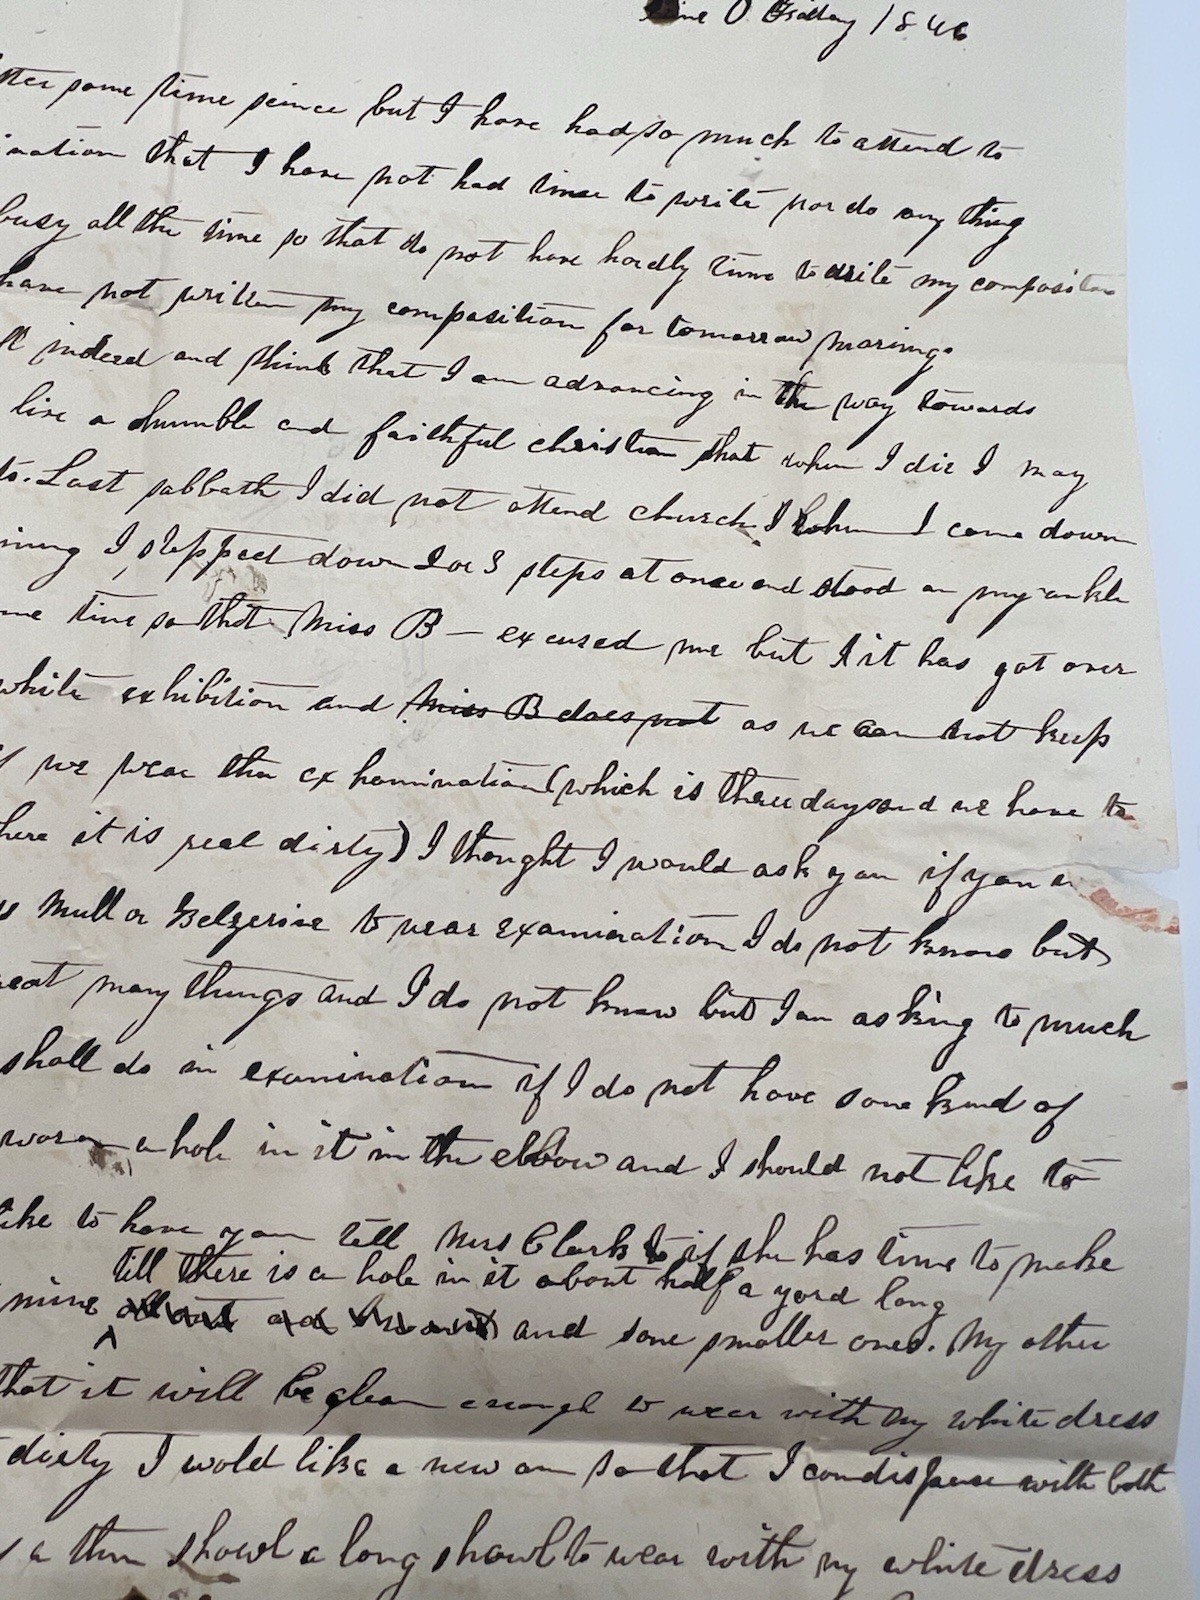 Friday 1846
some time seince but I have had so much to attend to
ination that I have not had time to write nor do any thing
busy all the time so that do not have hardly time to write my composition
have not written my composition for tomorrow morning
indeed and think that I am advancing in the way towards
live a humble and faithful christian that when I die I may
to. Last sabbath I did not attend church. I when I came down
ning I stepped down 2 or 3 steps at once and stood on my ankle
me time so that Miss B — excused me but I it has got over
white exhibition and Miss B does not as we can not keep
if we wear the exhamination (which is three days and we have to
here it is real dirty) I thought I would ask you if you
Mull or to wear examination I do not know but
reat many things and I do not know but I am asking to much
shall do in examination if I do not have some kind of
worn a hole in it in the elbow and I should not like to
like to have you tell Mrs Clark to if she has time to make
till there is a hole in it about half a yard long
mine and some smaller ones. My other
that it will be clean enough to wear with my white dress
dirty I wold like a new one so that I can dispense with both
a thin showl a long showl to wear with my white dress